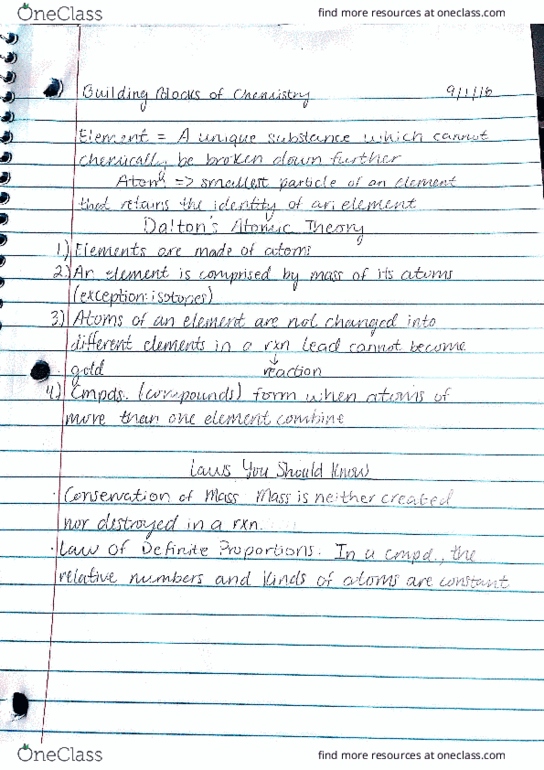 OneClass find more resources at oneclass.com
Building Blocks of Chemistry 9/1/16
Element = A unique substance which cannot
chemically be broken down further
Atom => smallest particle of an element
that retains the identity of an element
Dalton's Atomic Theory
1.) Elements are made of atoms
2.) An element is comprised by mass of its atoms
(exception: isotopes)
3.) Atoms of an element are not changed into
different elements in a rxn lead cannot become
gold reaction
4.) Cmpds. (compounds) form when atoms of
more than one element combine
Laws You Should Know
· Conservation of Mass Mass is neither created
nor destroyed in a rxn.
· Law of Definite Proportions. In a cmpd., the
relative numbers and kinds of atoms are constant
OneClass find more resources at oneclass.com